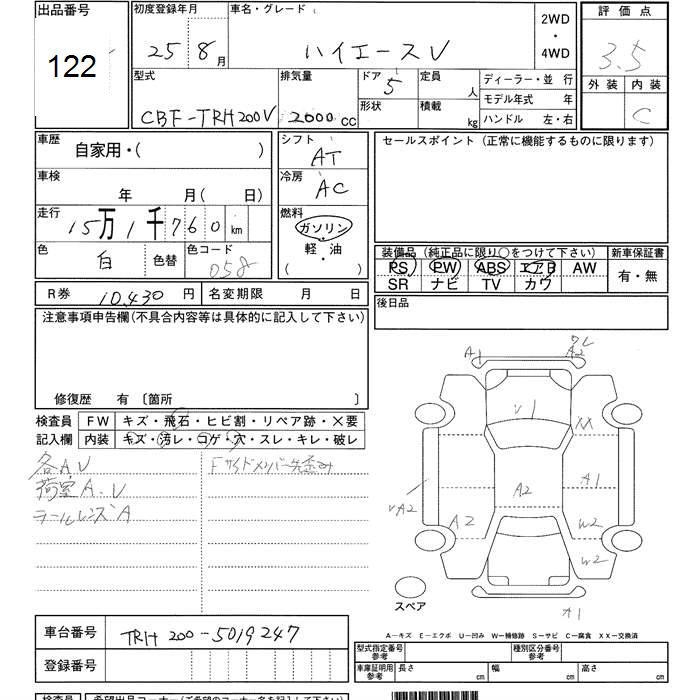 出品番号 初度登録年月 車名・グレード 評価点
122
25 8月 ハイエースV 2WD・4WD 3.5
外装 内装
C
型式 排気量 ドア 定員 ディーラー・並行
CBF-TRH200V 2000cc 5 人 モデル年式 年
形状 積載 kg ハンドル 左・右
車歴 自家用・( ) シフト AT セールスポイント(正常に機能するものに限ります)
車検 年 月(日) 冷房 AC
走行 15万1千760km 燃料 ガソリン・軽・油
( )
色 白 色替 色コード 058
装備品(純正品に限り○をつけて下さい) 新車保証書
PS PW ABS エアB AW 有・無
SR ナビ TV カワ
R券 10,430円 名変期限 月 日 後日品
注意事項申告欄(不具合内容等は具体的に記入して下さい)
修復歴 有〔箇所 〕
検査員 FW キズ・飛石・ヒビ割・リペア跡・X要
記入欄 内装 キズ・汚レ・コゲ・穴・スレ・キレ・破レ
各A.U
荷室A.U
テールレンズA
A1
A2
XX
A1
A2
UA2
A2
W2
W2
A1
スペア
A-キズ E-エクボ U-凹み W-補修跡 S-サビ C-腐食 XX-交換済
車台番号 TRH200-5019247
型式指定番号 参考 種別区分番号 参考
登録番号
車庫証明用 参考 長さ cm 幅 cm 高さ cm